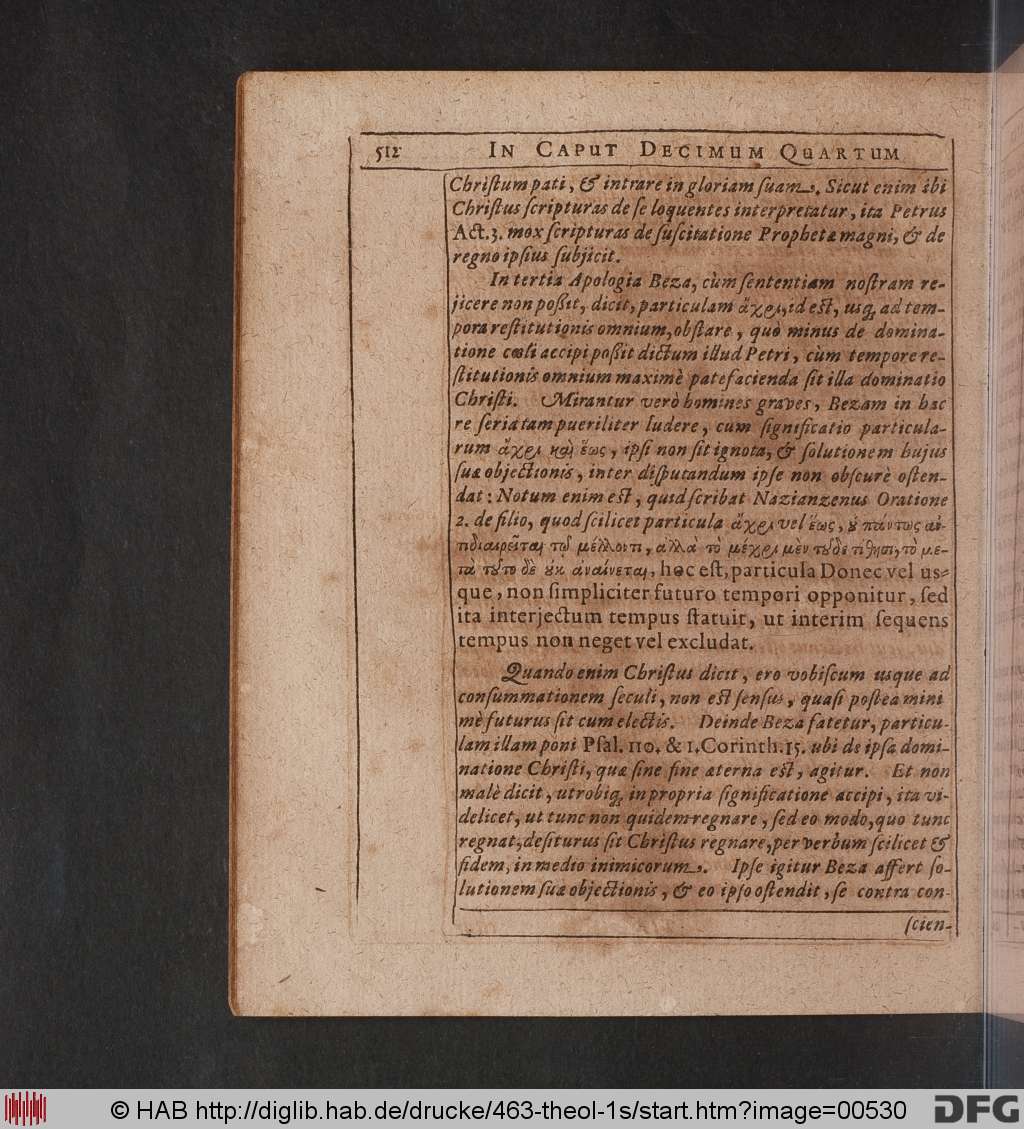 512 IN CAPUT DECIMUM QUARTUM
Christum pati, & intrare in gloriam suam. Sicut enim ibi
Christus scripturas de se loquentes interpretatur, ita Petrus
Act. 3. mox scripturas de suscitatione Prophetæ magni, & de
regno ipsius subjicit.
In tertia Apologia Beza, cùm sententiam nostram re-
jicere non poßit, dicit, particulam ἄχρι, id est, usq; ad tem-
pora restitutionis omnium, obstare, quò minus de domina-
tione cœli accipi poßit dictum illud Petri, cùm tempore re-
stitutionis omnium maximè patefacienda sit illa dominatio
Christi. Mirantur verò homines graves, Bezam in hac
re seria tam pueriliter ludere, cum significatio particula-
rum ἄχρι καὶ ἕως, ipsi non sit ignota, & solutionem hujus
suæ objectionis, inter disputandum ipse non obscurè osten-
dat: Notum enim est, quid scribat Nazianzenus Oratione
2. de filio, quod scilicet particula ἄχρι vel ἕως, οὐ πάντως ἀν-
τιδιαιρεῖται τῷ μέλλοντι, ἀλλὰ τὸ μέχρι μὲν τοῦδε τίθησι, τὸ με-
τὰ τοῦτο δὲ οὐκ ἀναίνεται, hoc est, particula Donec vel us-
que, non simpliciter futuro tempori opponitur, sed
ita interjectum tempus statuit, ut interim sequens
tempus non neget vel excludat.
Quando enim Christus dicit, ero vobiscum usque ad
consummationem seculi, non est sensus, quasi postea mini
mè futurus sit cum electis. Deinde Beza fatetur, particu-
lam illam poni Psal. 110. & 1. Corinth. 15. ubi de ipsa domi-
natione Christi, quæ sine fine æterna est, agitur. Et non
malè dicit, utrobiq; in propria significatione accipi, ita vi-
delicet, ut tunc non quidem regnare, sed eo modo, quo tunc
regnat, desiturus sit Christus regnare, per verbum scilicet &
fidem, in medio inimicorum. Ipse igitur Beza affert so-
lutionem suæ objectionis, & eo ipso ostendit, se contra con-
scien-
© HAB http://diglib.hab.de/drucke/463-theol-1s/start.htm?image=00530
DFG